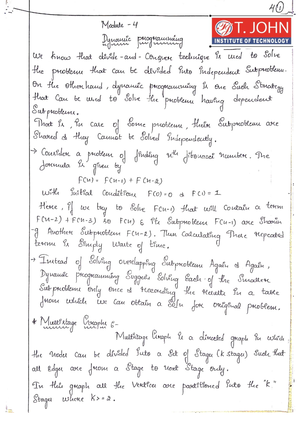 4(1)
T. JOHN
INSTITUTE OF TECHNOLOGY
Module - 4
Dynamic programming
We know that divide-and-Conquer technique is used to Solve
the problems that can be divided into Independent Subproblem.
On the other hand, dynamic programming is one Such Strategy
that Can be used to Solve the problems having dependent
Subproblems.
That is, in case of Some problems, their Subproblem are
Shared & they Cannot be Solved Independently.
→ Consider a problem of finding nth fibonacci number. The
formula is given by
F(n) = F(n-1) + F(n-2)
With Initial Condition F(0)=0 & F(1)=1
Here, if we try to Solve F(n-1) that will contain a term
F(n-2) + F(n-3) so F(n) & its Subproblem F(n-1) are Sharin
-g Another Subproblem F(n-2). Then Calculating These repeated
terms is Simply Waste of time.
→ Instead of Solving overlapping Subproblems Again & Again,
Dynamic programming Suggests Solving Each of the Smaller
Subproblems only once & recording the results in a table
from which we can obtain a Soln for original problem.
* Multistage Graphs :-
Multistage Graph is a directed graph in which
the nodes can be divided into a Set of Stages (k stages) Such that
all Edges are from a Stage to next Stage only.
In this graph all the vertices are partitioned into the "k"
Stages where k>=2.